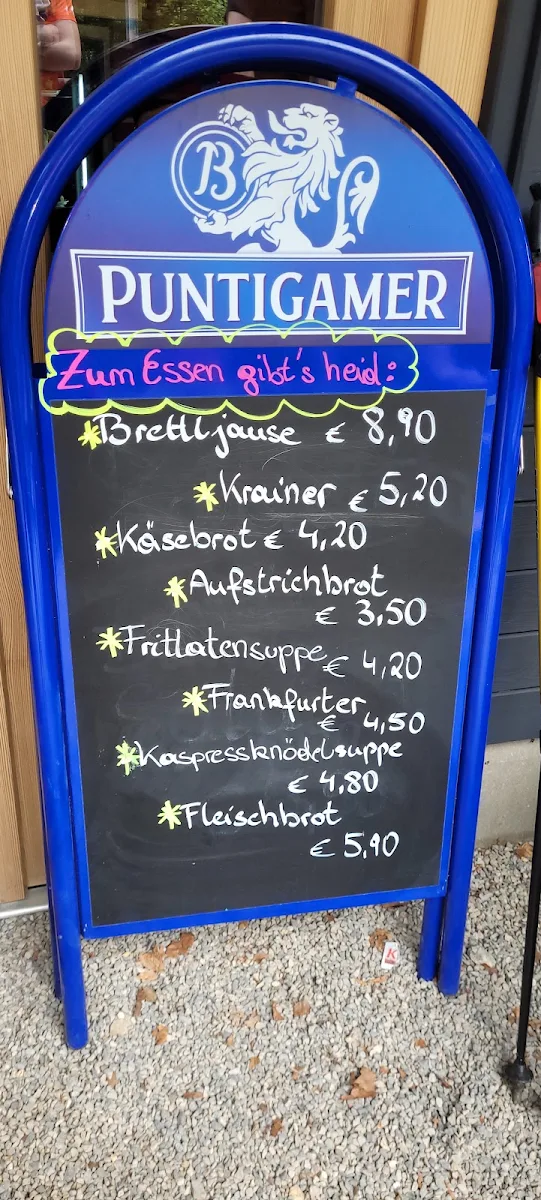 B
PUNTIGAMER
Zum Essen gibt's heid:
*Brettljause € 8,90
*Krainer € 5,20
*Käsebrot € 4,20
*Aufstrichbrot
€ 3,50
*Frittatensuppe € 4,20
*Frankfurter
€ 4,50
*Kaspressknödelsuppe
€ 4,80
*Fleischbrot
€ 5,90